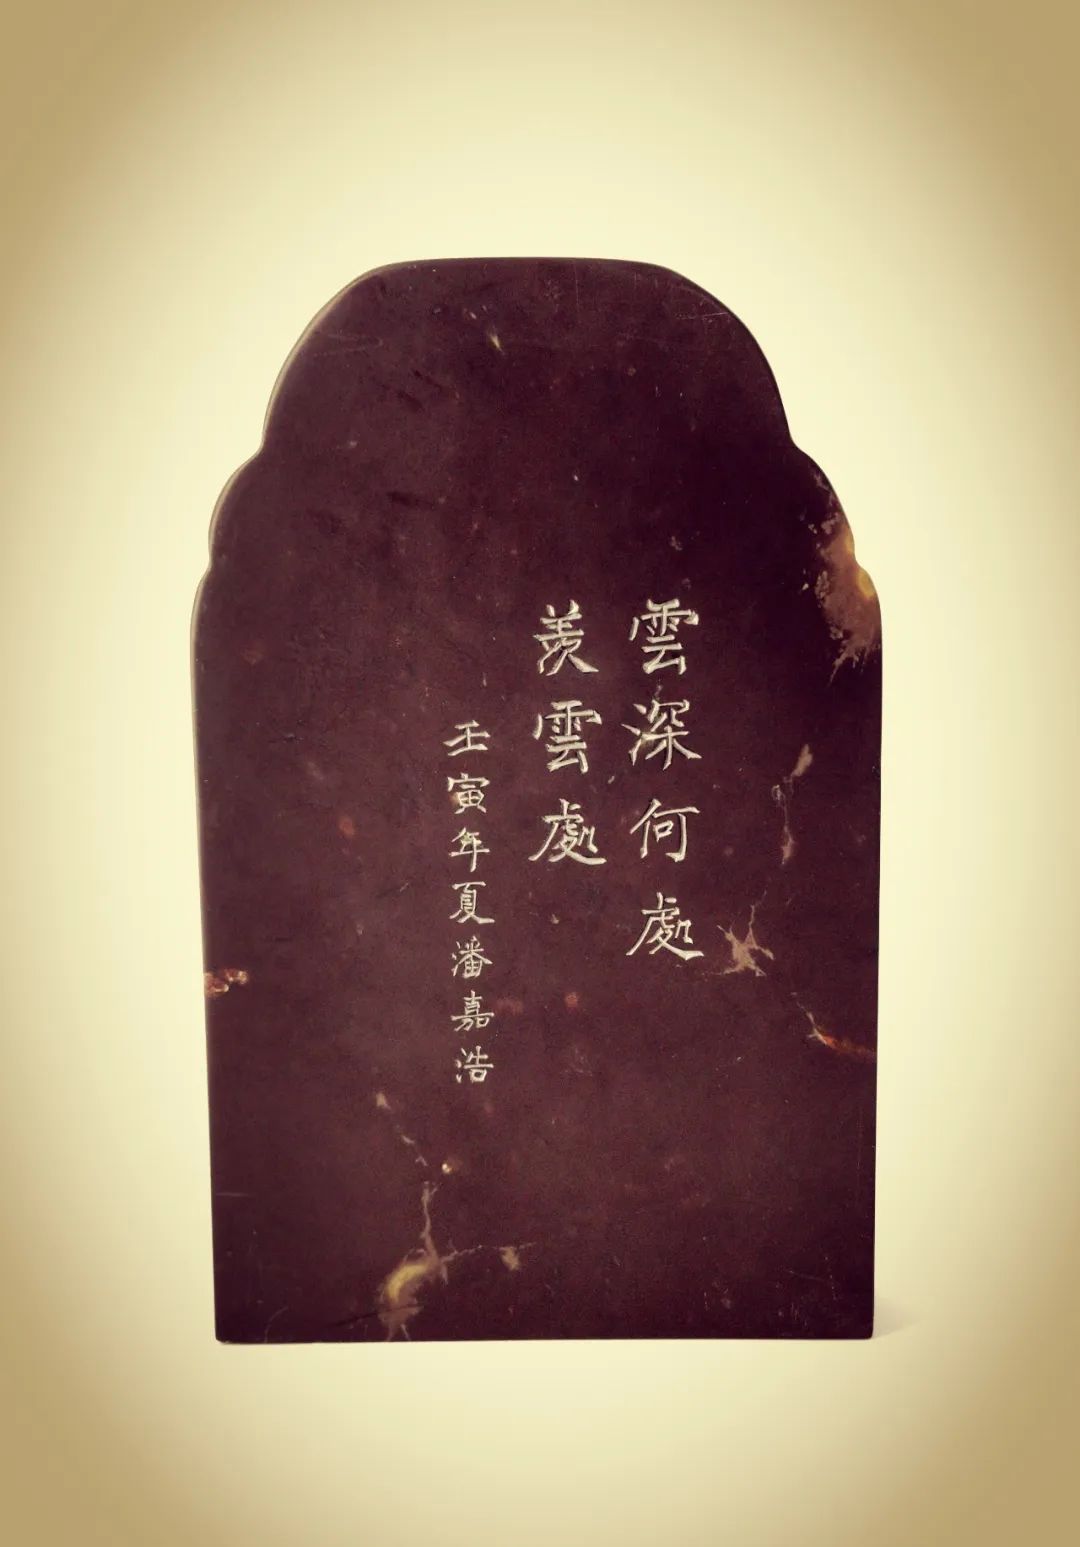 雲深何處
羨雲處
壬寅年夏潘嘉浩